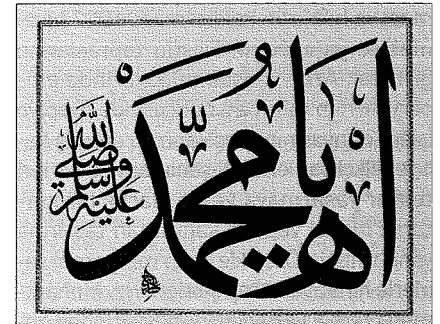 اه يا محمّد
صلى الله عليه وسلم